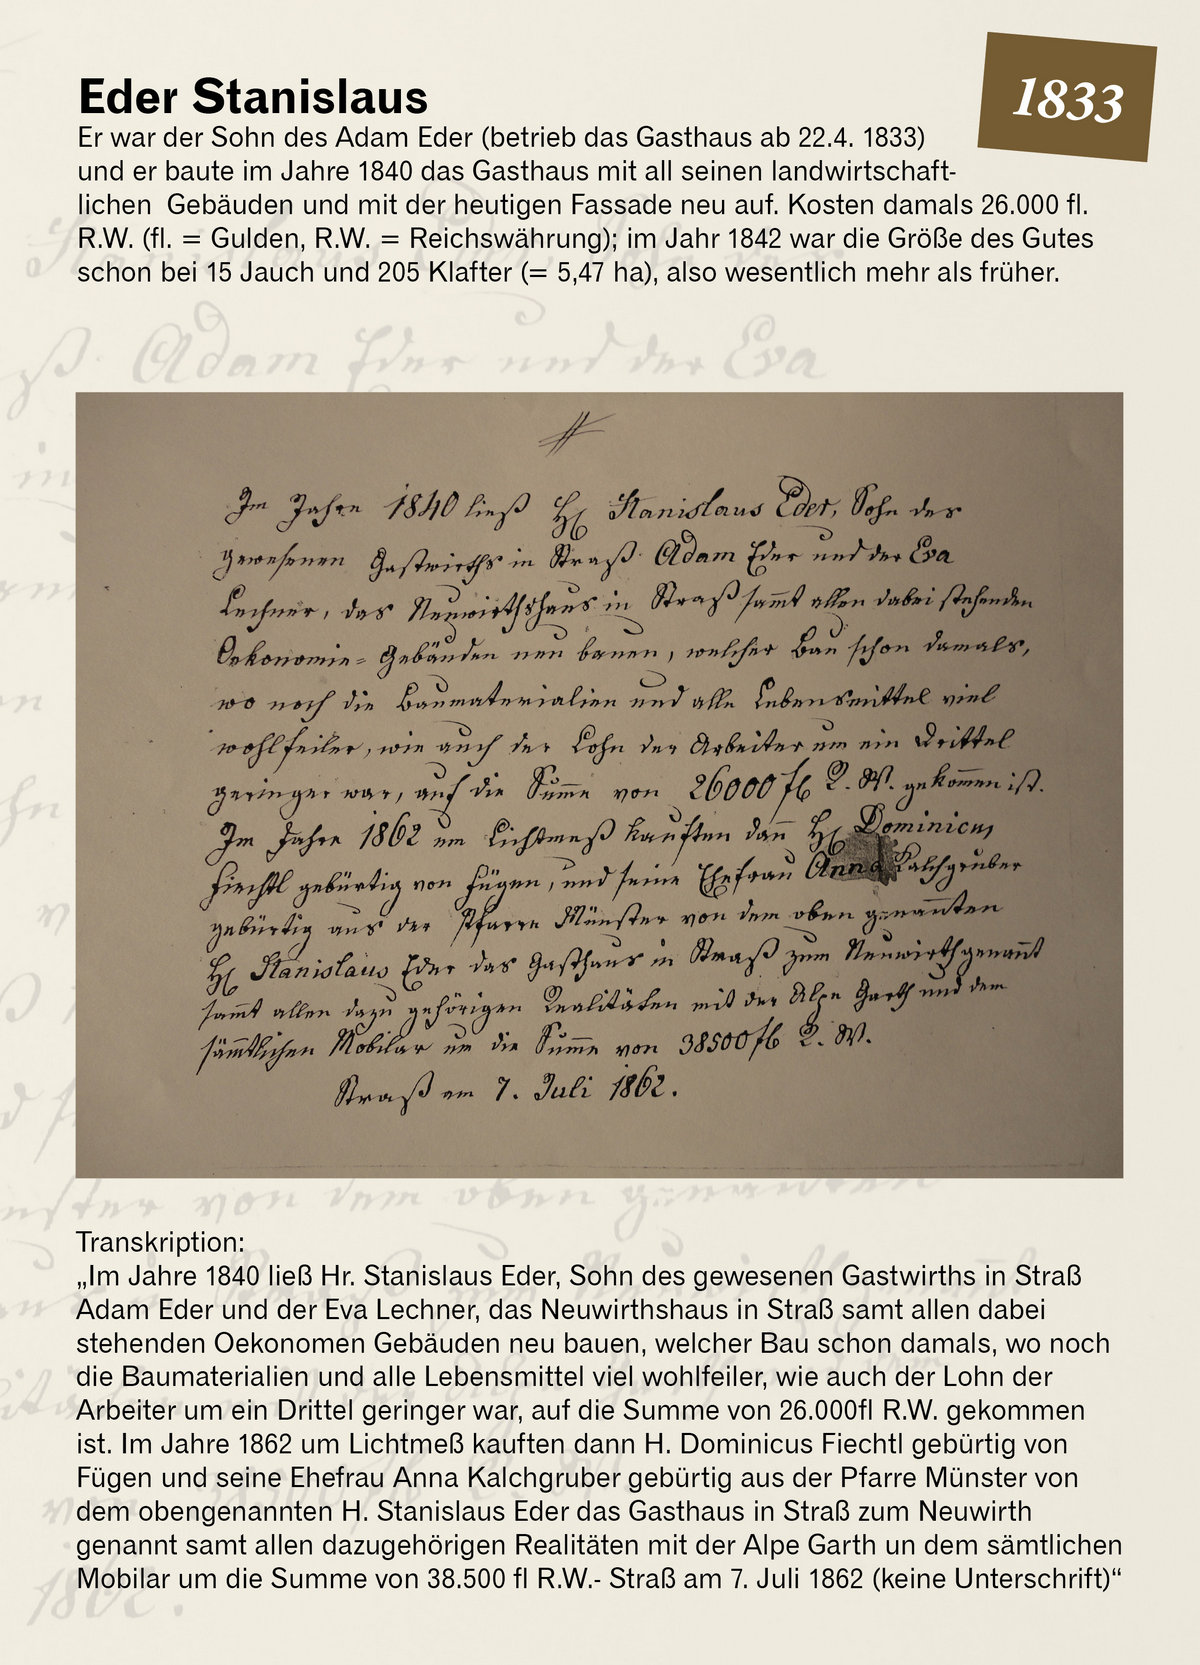 1833
Eder Stanislaus
Er war der Sohn des Adam Eder (betrieb das Gasthaus ab 22.4. 1833)
und er baute im Jahre 1840 das Gasthaus mit all seinen landwirtschaft-
lichen Gebäuden und mit der heutigen Fassade neu auf. Kosten damals 26.000 fl.
R.W. (fl. = Gulden, R.W. = Reichswährung); im Jahr 1842 war die Größe des Gutes
schon bei 15 Jauch und 205 Klafter (= 5,47 ha), also wesentlich mehr als früher.
Im Jahre 1840 ließ H. Stanislaus Eder, Sohn des
gewesenen Gastwirths in Straß Adam Eder und der Eva
Lechner, das Neuwirthshaus in Straß sammt allen dabei stehenden
Oekonomie-Gebäuden neu bauen, welcher Bau schon damals,
wo noch die Baumaterialien und alle Lebensmittel viel
wohlfeiler, wie auch der Lohn der Arbeiter um ein Drittel
geringer war, auf die Summe von 26000 fl R. W. gekommen ist.
Im Jahre 1862 um Lichtmeß kauften dann H. Dominicus
Fiechtl gebürtig von Fügen, und seine Ehefrau Anna Kalchgruber
gebürtig aus der Pfarre Münster von dem oben genannten
H. Stanislaus Eder das Gasthaus in Straß zum Neuwirth genannt
sammt allen dazu gehörigen Realitäten mit der Alpe Garth und dem
sämmtlichen Mobilar um die Summe von 38500 fl R. W.
Straß am 7. Juli 1862.
Transkription:
„Im Jahre 1840 ließ Hr. Stanislaus Eder, Sohn des gewesenen Gastwirths in Straß
Adam Eder und der Eva Lechner, das Neuwirthshaus in Straß samt allen dabei
stehenden Oekonomen Gebäuden neu bauen, welcher Bau schon damals, wo noch
die Baumaterialien und alle Lebensmittel viel wohlfeiler, wie auch der Lohn der
Arbeiter um ein Drittel geringer war, auf die Summe von 26.000fl R.W. gekommen
ist. Im Jahre 1862 um Lichtmeß kauften dann H. Dominicus Fiechtl gebürtig von
Fügen und seine Ehefrau Anna Kalchgruber gebürtig aus der Pfarre Münster von
dem obengenannten H. Stanislaus Eder das Gasthaus in Straß zum Neuwirth
genannt samt allen dazugehörigen Realitäten mit der Alpe Garth un dem sämtlichen
Mobilar um die Summe von 38.500 fl R.W.- Straß am 7. Juli 1862 (keine Unterschrift)“